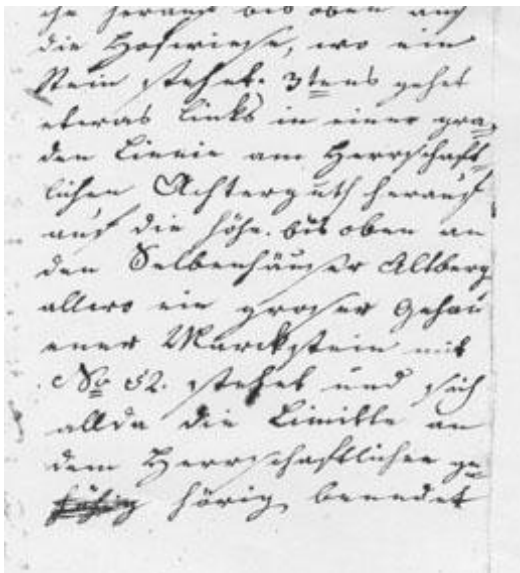 che herauf bis oben auf
die Hofwiese, wo ein
Stein stehet. 3tens gehet
etwas links in einer gra,
den Linie am Herrschaft,
lichen Achterguth herauf
auf die Höhe. bis oben an
den Selbenhäußer Altberg
allwo ein großer Gehau
ener Marckstein mit
No 52. stehet und sich
allda die Limitte an
dem Herrschaftlichen ge
hörig benedet